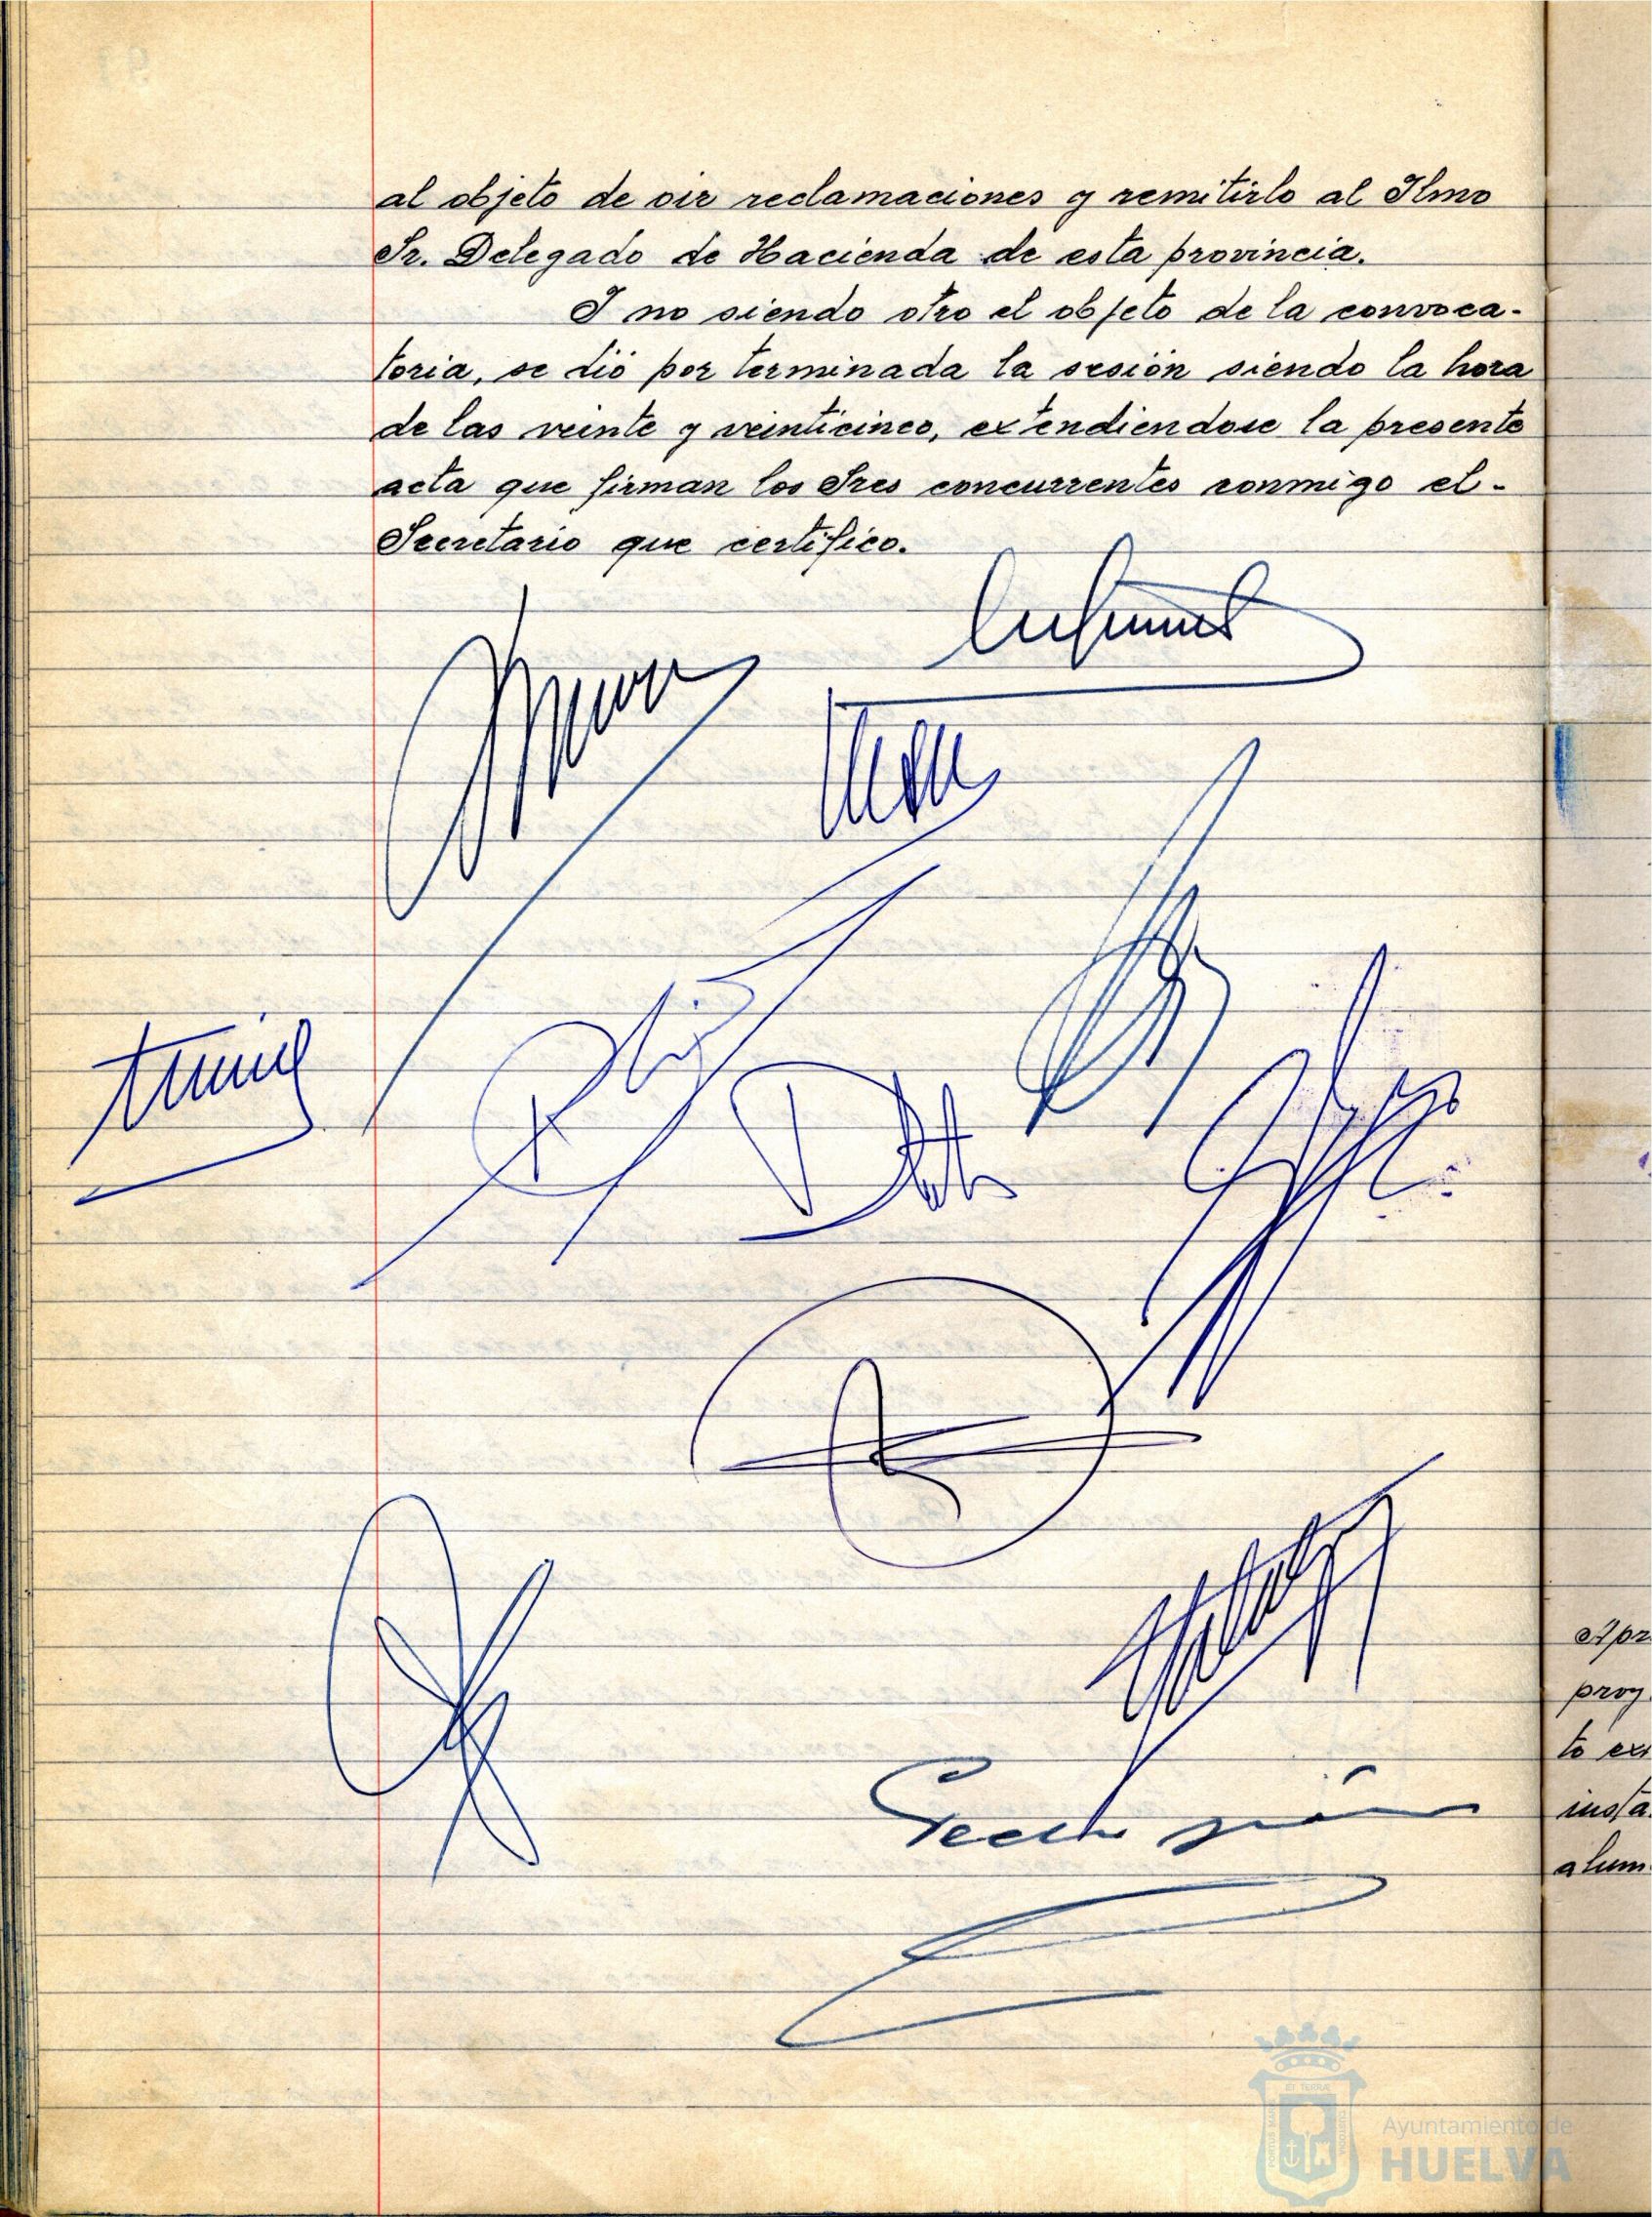 al objeto de oir reclamaciones y remitirlo al Ilmo
Sr. Delegado de Hacienda de esta provincia.
I no siendo otro el objeto de la convoca-
toria, se dió por terminada la sesión siendo la hora
de las veinte y veinticinco, extendiendose la presente
acta que firman los Sres concurrentes conmigo el-
Secretario que certifico.
Apr
proy
to ex
insta
alum
Ayuntamiento de
HUELVA